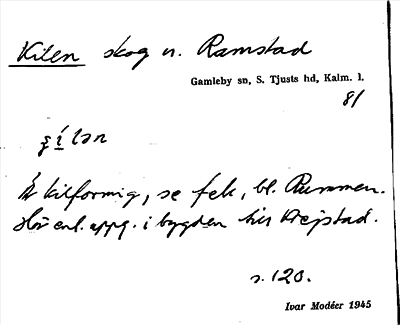 Kilen skog u. Ramstad
Gamleby sn, S. Tjusts hd, Kalm. l.
81
Är kilformig, se fek, bl. Rummen.
Hör enl. uppg. i bygden till Dejstad.
s. 120.
Ivar Modéer 1945